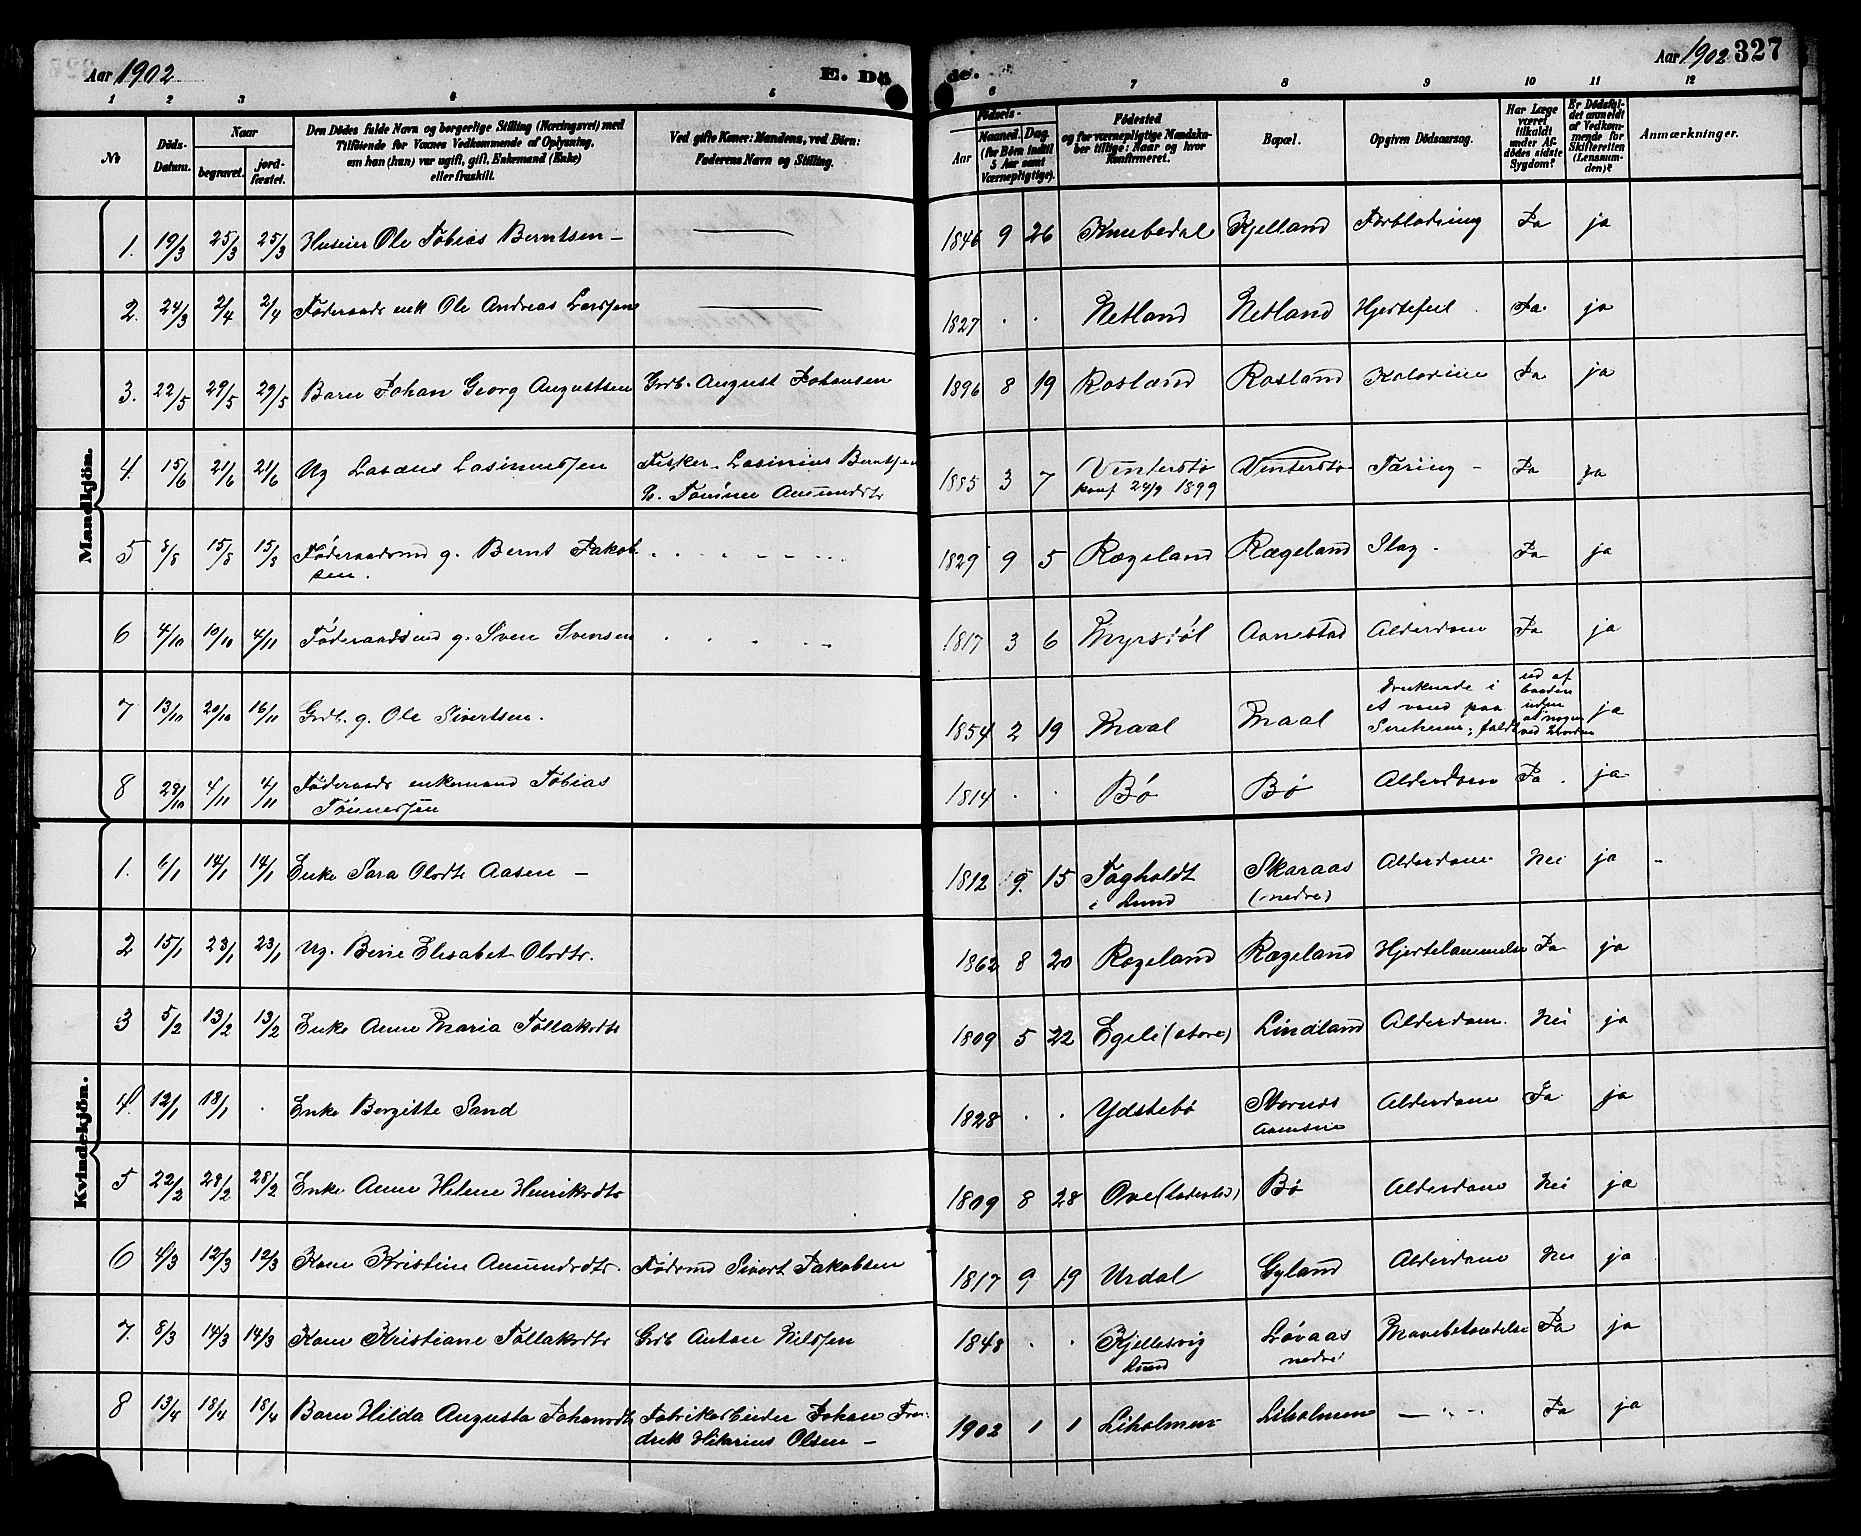 Aar 1902
E. Dö
de.
Aar 1902 327
1 2 3 4 5 6 7 8 9 10 11 12
No
Döds-Datum.
Naar
begravet.
jord-fæstet.
Den Dödes fulde Navn og borgerlige Stilling (Næringsvei) med
Tilföiende for Voxnes Vedkommende af Oplysning,
om han (hun) var ugift, gift, Enkemand (Enke)
eller fraskilt.
Ved gifte Koner: Mandens, ved Börn:
Faderens Navn og Stilling.
Födsels-
Aar
Maaned. Dag.
(for Börn indtil
5 Aar samt
Værnepligtige).
Födested
og for værnepligtige Mandska-
ber tillige: Naar og hvor
Konfirmeret.
Bopæl.
Opgiven Dödsaarsag.
Har Læge
været
tilkaldt
under Af-
dödes sidste
Sygdom?
Er Dödsfal-
det anmeldt
af Vedkom-
mende for
Skifteretten
(Lensman-
den)?
Anmærkninger.
Mandkjön.
1. 19/3 25/3 25/3 Huseier Ole Tobias Berntsen – 1846 9 26 Knubedal Kjelland Forblödning Ja ja
2. 24/3 2/4 2/4 Föderaads enk Ole Andreas Larssen 1827 . . Netland Netland Hjertefeil . Ja. ja
3. 22/5 29/5 29/5 Barn Johan Georg Augustsen Grdb. August Johansen 1896 8 19 Rosland Rosland Ja ja
4. 15/6 21/6 21/6 Ug Lasinussen Fisker Lasinius Berntsen
G. Amundsdtr 1885 3 7 Vinterstø Vinterstø Tæring – Ja ja
konf 24/9 1899
5 8/8 15/8 15/8 Föderaadsmd g. Bernt Jakob
sen. 1829 9 5 Rægeland Rægeland Slag . Ja ja
6 4/10 10/10 4/11 Föderaadsmd g. Sven Svensen 1817 3 6 Myrstöl Aanestad Alderdom Ja ja
7 13/10 20/10 16/11 Grdb. g. Ole Sivertsen. 1854 2 19 Maal Maal druknede i
et vand paa
faldt
ud af
baaden
uden
at nogen
ved hvordan ja
8 29/10 4/11 4/11 Föderaads enkemand Tobias
Tönnessen 1814 . . Bö Bö Alderdom Ja . ja
Kvindekjön.
1. 6/1 14/1 14/1 Enke Sara Olsdtr Aasen – 1812 9. 15 Fagholdt
i Lund Skaraas
(nedre) Alderdom Nei ja –
2 15/1 23/1 23/1 Ug. Elisabet Olsdtr. 1862 8 20 Rægeland Rægeland Hjertelammelse Ja ja
3 5/2 13/2 13/2 Enke Anne Maria Tollaksdtr 1809 5 22 Egeli (store) Lindland Alderdom. Nei ja
4. 12/1 18/1 . Enke Bergitte Sand 1828 . . Ydstebö Alderdom Ja ja
5 22/2 28/2 28/2 Enke Anne Helene Henriksdtr 1809 8 28 Ove (ladested) Bö Alderdom Nei ja
6 4/3 12/3 12/3 Kone Kristine Amundsdtr. Födrmd Sivert Jakobsen 1817 9 19 Urdal Gyland Alderdom Nei ja
7. 8/3 14/3 14/3 Kone Kristiane Tollaksdtr Grdb Anton Nilssen 1848 . . Kjellesvig
Lund Lövaas
nedre Mavebetændelse Ja ja
8 13/4 18/4 18/4 Barn Hilda Augusta Johansdtr Fabrikarbeider Johan Fre-
drik Hilarius Olsen – 1902 1 1 Liholmen Liholmen – Ja ja